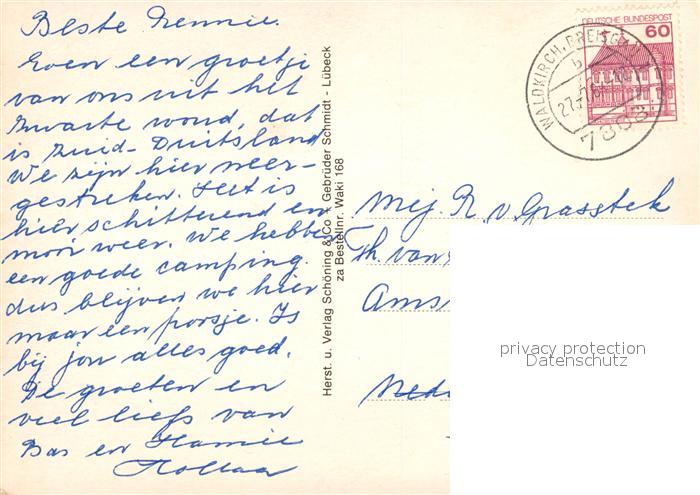 Beste Nennie.
Even een groetje
van ons uit het
Zwarte woud, dat
is Zuid-Duitsland
We zijn hier neer-
gestreken. Het is
hier schitterend en
mooi weer. We hebben
een goede camping.
dus blijven we hier
maar een posje. Is
bij jou alles goed.
De groeten en
veel liefs van
Bas en
Herst. u. Verlag Schöning & Co + Gebrüder Schmidt - Lübeck
za Bestellnr. Waki 168
DEUTSCHE BUNDESPOST
60
WALDKIRCH, BREISGAU
b
7808
Mej. R. v. Grasstek
Th. van
Ams
Nede
privacy protection
Datenschutz